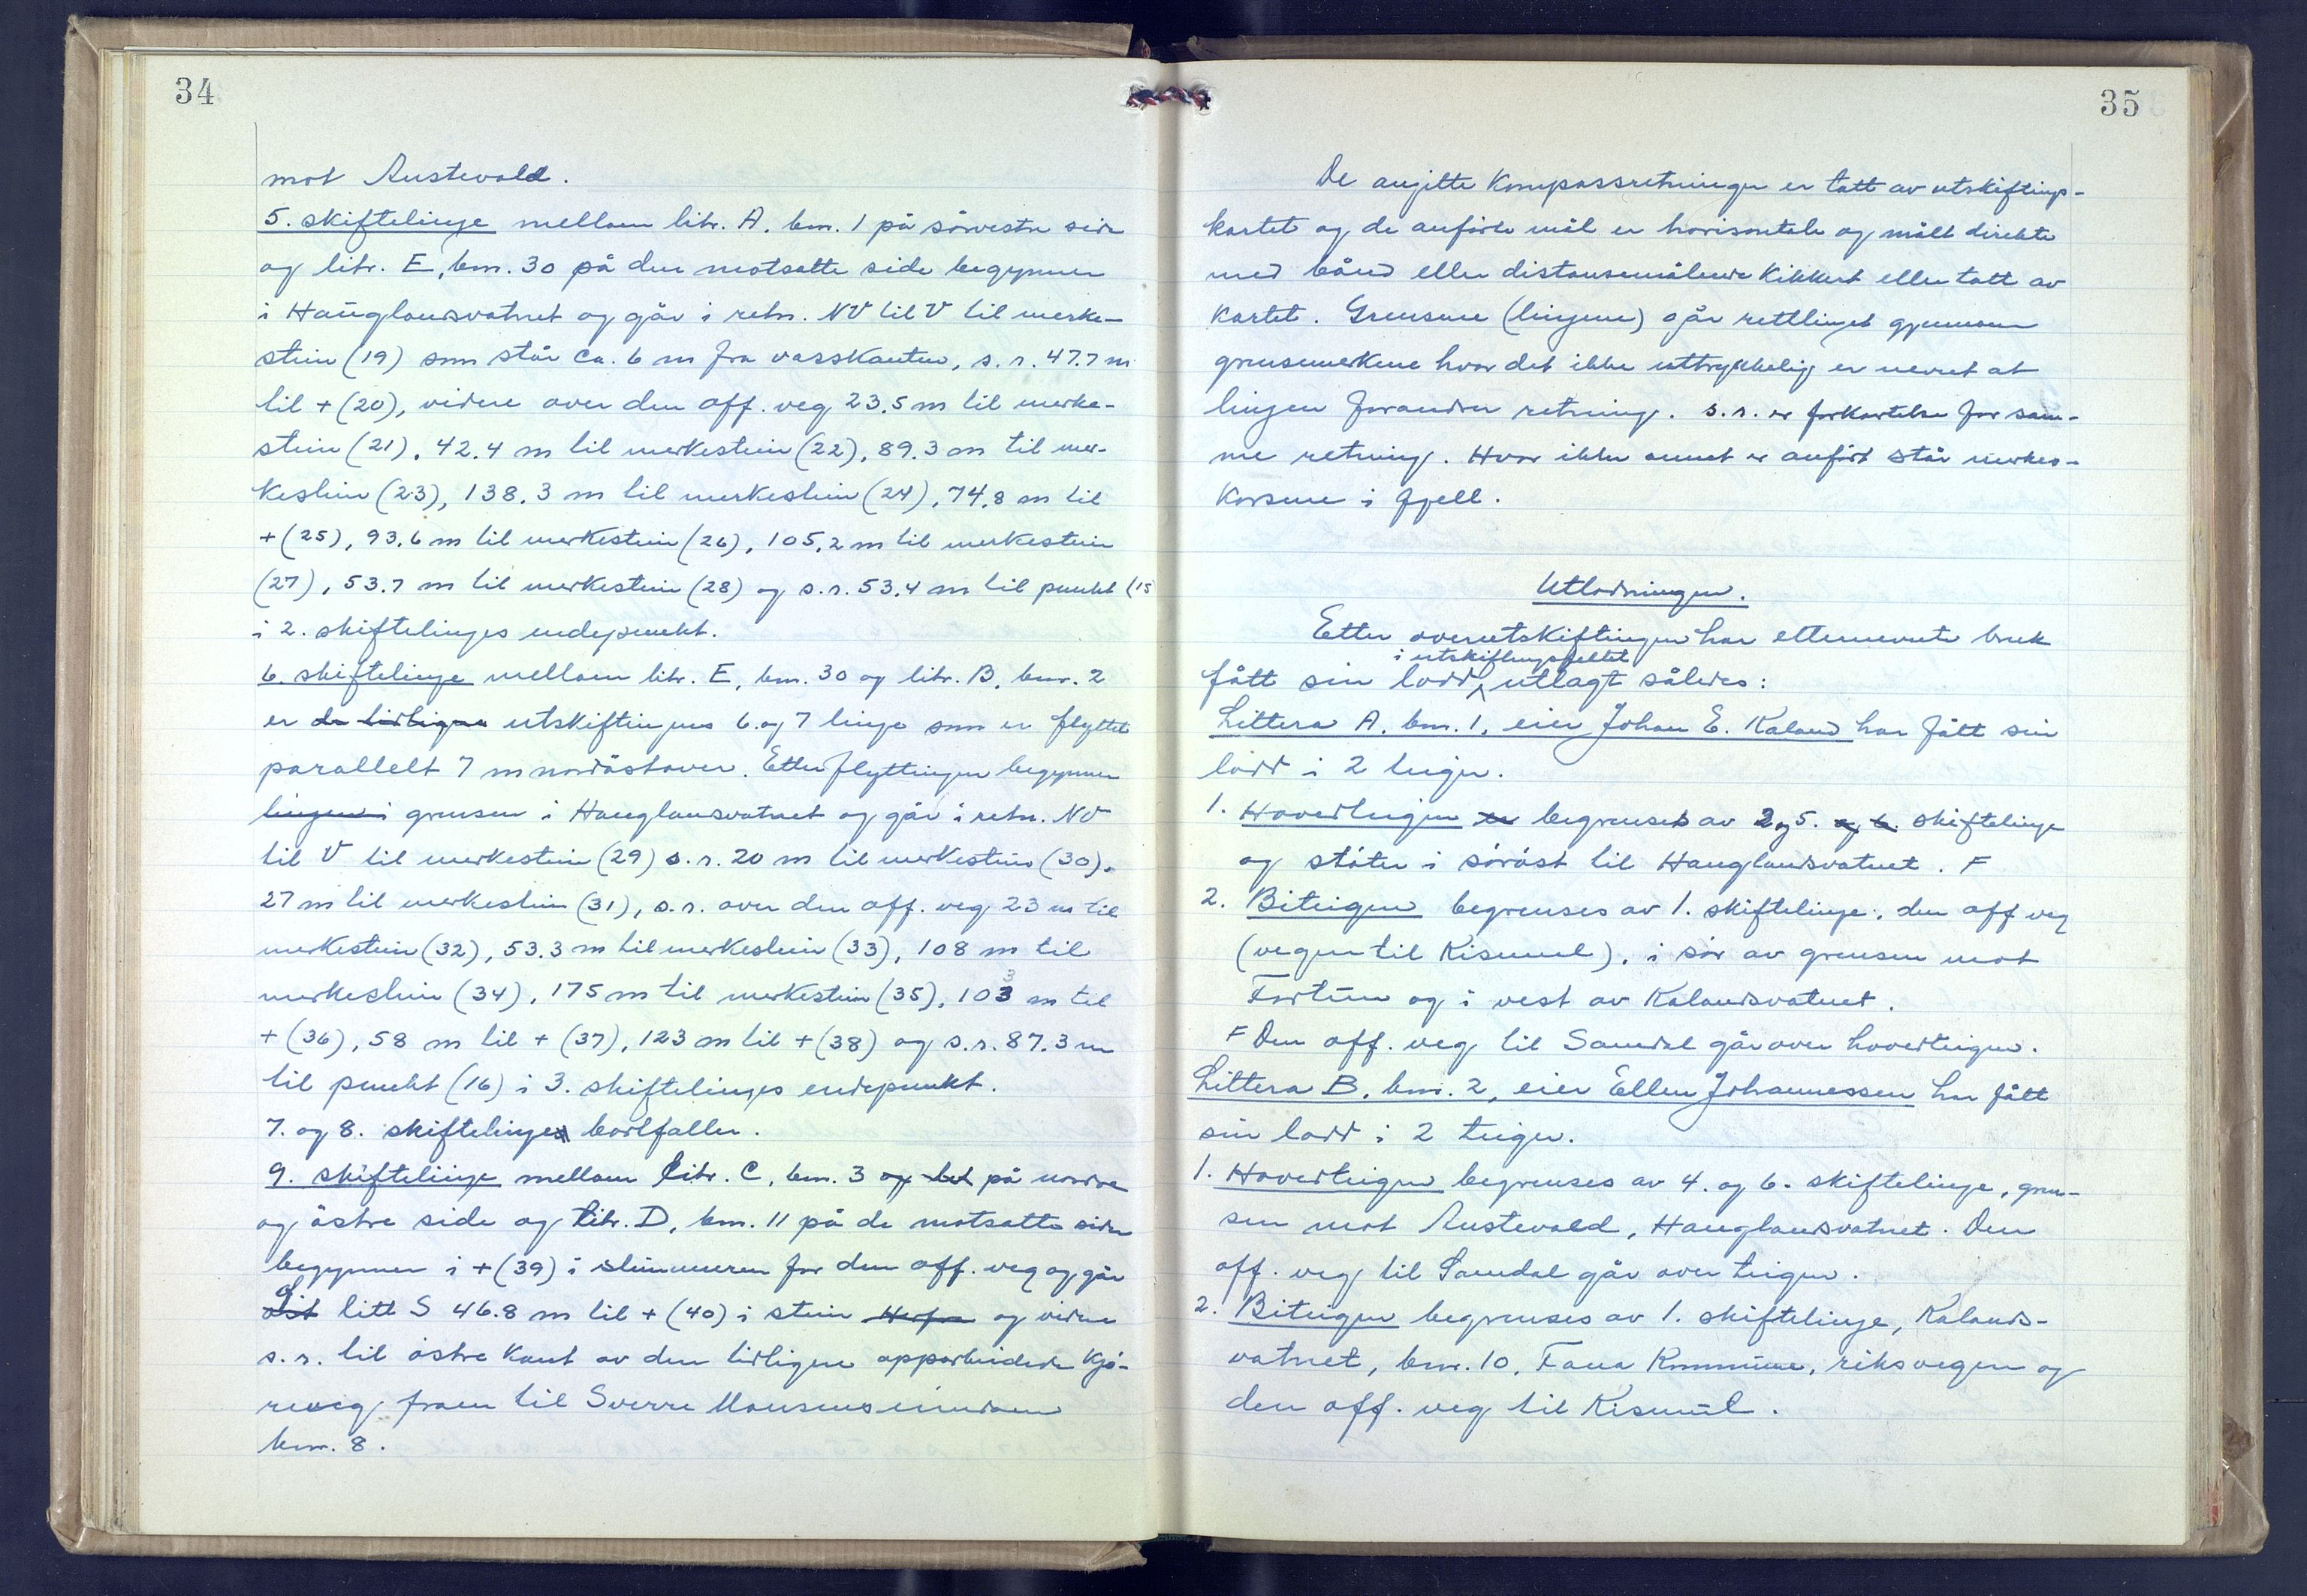 34
mot Austevold.
5. skiftelinje mellom litr. A. bnr. 1 på sörvestre side
og litr. E, bnr. 30 på den motsatte side begynner
i Hauglandsvatnet og går i retn. NV til V til merke-
stein (19) som står ca. 6 m fra vasskanten, s. r. 47.7 m
til + (20), videre over den off. veg 23.5 m til merke-
stein (21), 42.4 m til merkestein (22), 89.3 m til mer-
kestein (23), 138.3 m til merkestein (24), 74.8 m til
+ (25), 93.6 m til merkestein (26), 105.2 m til merkestein
(27), 53.7 m til merkestein (28) og s.r. 53.4 m til punkt (15
i 2. skiftelinjes endepunkt.
6. skiftelinje mellom litr. E, bnr. 30 og litr. B, bnr. 2
er de tidligere utskiftingens 6. og 7 linje som er flyttet
parallelt 7 m nordöstover. Etter flyttingen begynner
linjen i grensen i Hauglandsvatnet og går i retn. NV
til V til merkestein (29) s. r. 20 m til merkestein (30),
27 m til merkestein (31), s.r. over den off. veg 23 m til
merkestein (32), 53.3 m til merkestein (33), 108 m til
merkestein (34), 175 m til merkestein (35), 103 m til
+ (36), 58 m til + (37), 123 m til + (38) og s.r. 87.3 m
til punkt (16) i 3. skiftelinjes endepunkt.
7. og 8. skiftelinje bortfaller.
9. skiftelinje mellom Litr. C, bnr. 3 og på nordre
og östre side og Litr. D, bnr. 11 på de motsatte sider
begynner i + (39) i steinmuren for den off. veg og går
litt S 46.8 m til + (40) i stein Herfra og videre
s. r. til östre kant av den tidligere opparbeidede kjö-
reveg fram til Sverre Monsens eiendom
bnr. 8.
35
De angitte kompassretninger er tatt av utskiftings-
kartet og de anförte mål er horisontale og målt direkte
med bånd eller distansemålende kikkert eller tatt av
kartet. Grensene (linjene) går rettlinjet gjennom
grensemerkene hvor det ikke uttrykkelig er nevnt at
linjen forandrer retning. s. r. er forkortelse for sam-
me retning. Hvor ikke annet er anfört står merkes-
korsene i fjell.
Utlodningen.
Etter overutskiftingen har etternevnte bruk
i utskiftingsfeltet
fått sin lodd utlagt således:
Littera A. bnr. 1, eier Johan E. Kaland har fått sin
lodd i 2 teiger.
1. Hovedteigen er begrenset av 2 og 5. og 6. skiftelinje
og stöter i söröst til Hauglandsvatnet. F
2. Biteigen begrenses av 1. skiftelinje, den off veg
(vegen til Kismul), i sör av grensen mot
Fortun og i vest av Kalandsvatnet.
F Den off. veg til Samdal går over hovedteigen.
Littera B, bnr. 2, eier Ellen Johannessen har fått
sin lodd i 2 teiger.
1. Hovedteigen begrenses av 4. og 6. skiftelinje, gren-
sen mot Austevold, Hauglandsvatnet. Den
off. veg til Samdal går over teigen.
2. Biteigen begrenses av 1. skiftelinje, Kalands-
vatnet, bnr. 10, Fana Kommune, riksvegen og
den off. veg til Kismul.